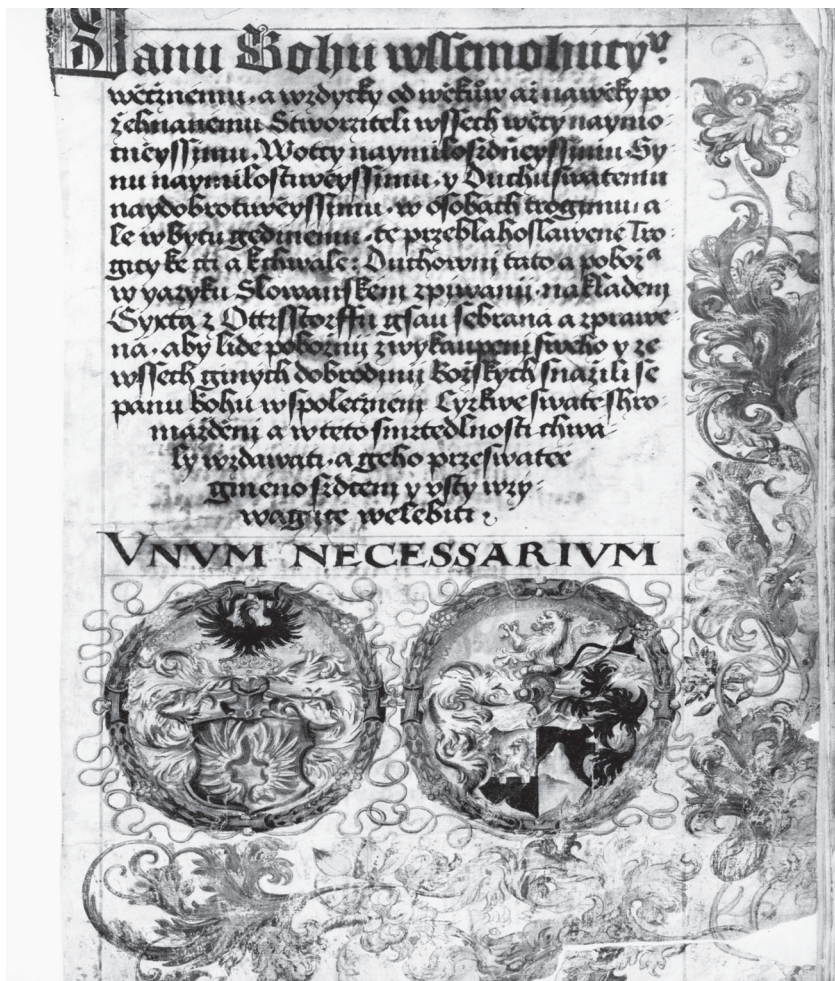 Panu Bohu wssemohucyᵘ·
wěčznemu, a wzdycky od wěkůw až nawěky po
żehnanemu Stworziteli wssech wěcy naymo
cneyssimu, Wotcy naymilosrdneyssimu Sy-
nu naymilostiwěyssimu, y Duchu swatemu
naydobrotiwěyssimu, w osobach trogimu, a
le w bytu gedinemu, te przeblahoslawene Tro
gicy ke cti a k chwale: Duchownj tato a poboż ͣ
w yazyku Slowanskem zpiwanij nakladem
Syxta z Ottrsstorffu gsau sebrana a zprawe
na, aby lide pobożnij z wykaupenj sweho y ze
wssech ginych dobrodinij Bożskych snażili se
panu bohu w spolecżnem Cyrkwe swate shro-
mażdenj a w teto smrtedlnosti chwa-
ly wzdawati, a geho przeswatee
gmeno srdcem y vsty wzy-
wagice welebiti.
VNVM NECESSARIVM